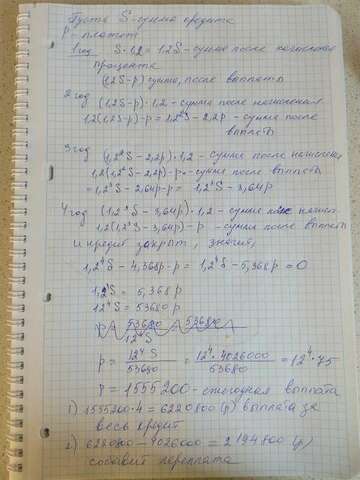 Пусть S-сумма кредита
P - платеж
1 год S·1,2 = 1,2S - сумма после начисления
процента
(1,2S-p) сумма, после выплаты
2 год (1,2S-p)·1,2 - сумма после начисления
1,2(1,2S-p)-p = 1,2²S - 2,2p - сумма после
выплаты
3 год (1,2²S-2,2p)·1,2 - сумма после начислен
1,2(1,2²S-2,2p)-p - сумма после выплаты
= 1,2³S - 2,64p - p = 1,2³S - 3,64p
4 год (1,2³S - 3,64p)·1,2 - сумма после
1,2(1,2³S - 3,64p) - p - сумма после выплаты
и кредит закрыт, значит,
1,2⁴S - 4,368p - p = 1,2⁴S - 5,368p = 0
1,2⁴S = 5,368p
12⁴S = 53680p
p = 12⁴S / 53680 = 12⁴·4026000 / 53680 = 12⁴·75
p = 1555200 - ежегодная выплата
1) 1555200·4 = 6220800 (р) выплата за
весь кредит
2) 6220800 - 4026000 = 2194800 (р)
составит переплата